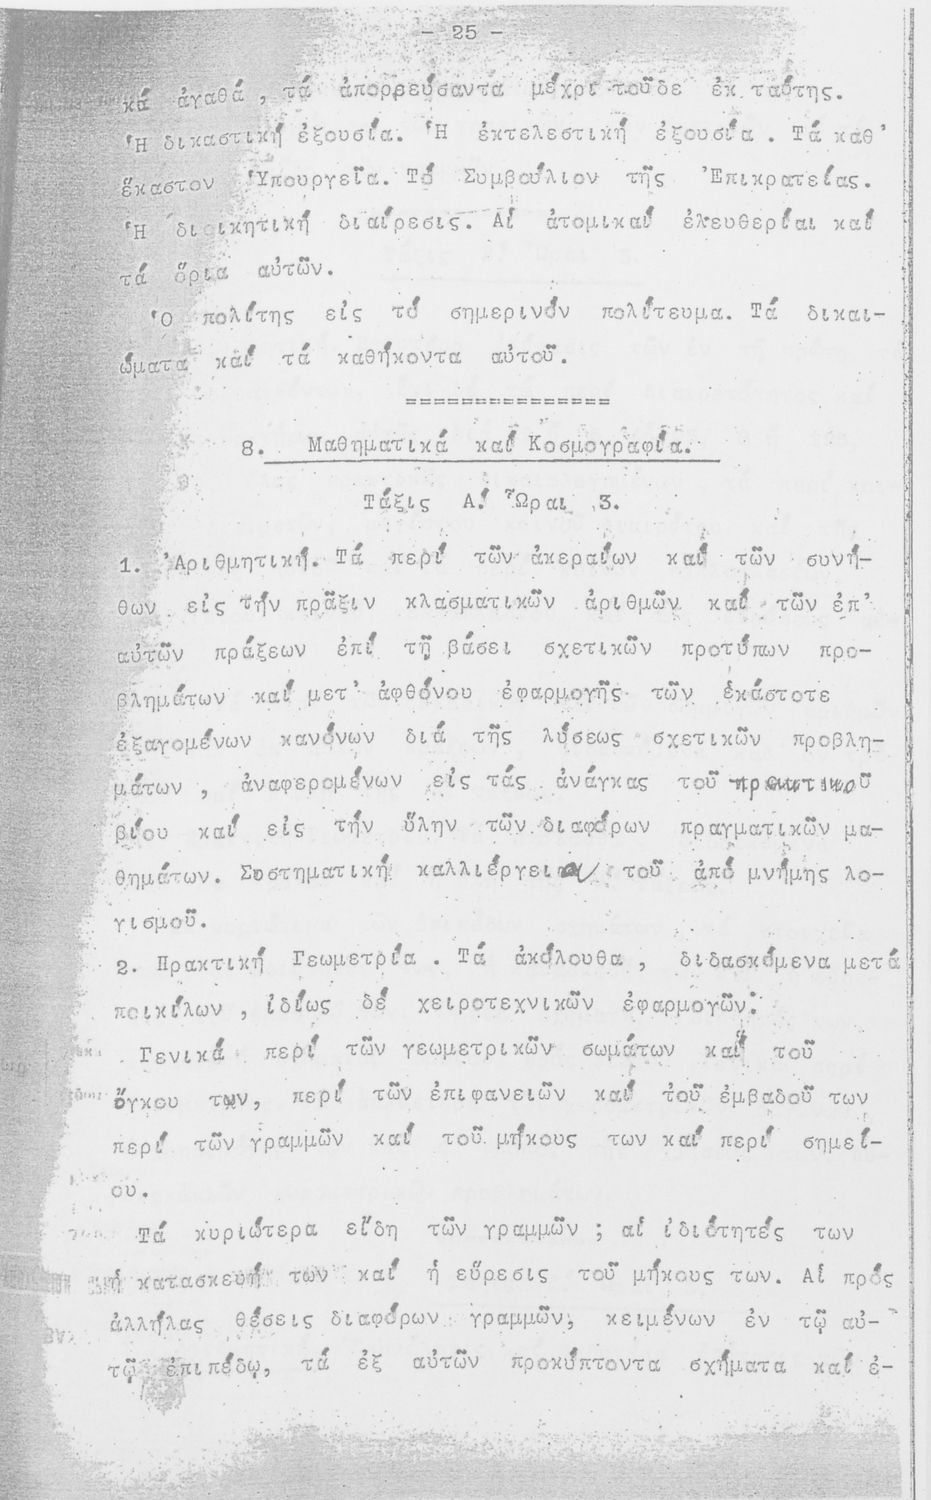 - 25 -
κά ἀγαθά, τά ἀπορρεύσαντα μέχρι τοῦδε ἐκ ταύτης.
Ἡ δικαστική ἐξουσία. Ἡ ἐκτελεστική ἐξουσία. Τά καθ'
ἕκαστον Ὑπουργεῖα. Τό Συμβούλιον τῆς Ἐπικρατείας.
Ἡ διοικητική διαίρεσις. Αἱ ἀτομικαί ἐλευθερίαι καί
τά ὅρια αὐτῶν.
Ὁ πολίτης εἰς τό σημερινόν πολίτευμα. Τά δικαι-
ώματα καί τά καθήκοντα αὐτοῦ.
===============
8. Μαθηματικά καί Κοσμογραφία.
Τάξις Α! Ὧραι 3.
1. Ἀριθμητική. Τά περί τῶν ἀκεραίων καί τῶν συνή-
θων εἰς τήν πρᾶξιν κλασματικῶν ἀριθμῶν καί τῶν ἐπ'
αὐτῶν πράξεων ἐπί τῇ βάσει σχετικῶν προτύπων προ-
βλημάτων καί μετ' ἀφθόνου ἐφαρμογῆς τῶν ἑκάστοτε
ἐξαγομένων κανόνων διά τῆς λύσεως σχετικῶν προβλη-
μάτων, ἀναφερομένων εἰς τάς ἀνάγκας τοῦ πρακτικοῦ
βίου καί εἰς τήν ὕλην τῶν διαφόρων πραγματικῶν μα-
θημάτων. Συστηματική καλλιέργεια τοῦ ἀπό μνήμης λο-
γισμοῦ.
2. Πρακτική Γεωμετρία. Τά ἀκόλουθα, διδασκόμενα μετά
ποικίλων, ἰδίως δέ χειροτεχνικῶν ἐφαρμογῶν:
Γενικά περί τῶν γεωμετρικῶν σωμάτων καί τοῦ
ὄγκου των, περί τῶν ἐπιφανειῶν καί τοῦ ἐμβαδοῦ των
περί τῶν γραμμῶν καί τοῦ μήκους των καί περί σημεί-
ου.
Τά κυριώτερα εἴδη τῶν γραμμῶν; αἱ ἰδιότητές των
ἡ κατασκευή των καί ἡ εὕρεσις τοῦ μήκους των. Αἱ πρός
ἀλλήλας θέσεις διαφόρων γραμμῶν, κειμένων ἐν τῷ αὐ-
τῷ ἐπιπέδῳ, τά ἐξ αὐτῶν προκύπτοντα σχήματα καί ἐ-